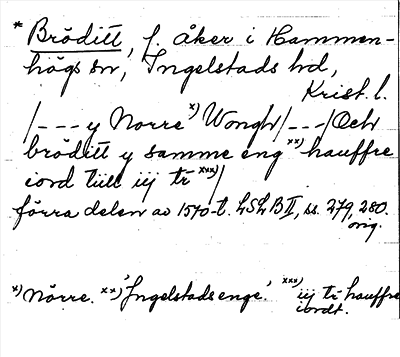 * Bröditt, f. åker i Hammen-
högs sn, Ingelstads hd,
Krist. l.
/--- y Norre x) Wongh/---/Och
bröditt y samme eng xx) hauffre
iord tiill iij tr xxx)/
förra delen av 1570-t. LSLB II, ss. 279, 280.
orig.
x) Nörre. xx) 'Ingelstads enge.' xxx) iij tr hauffre
iordt.